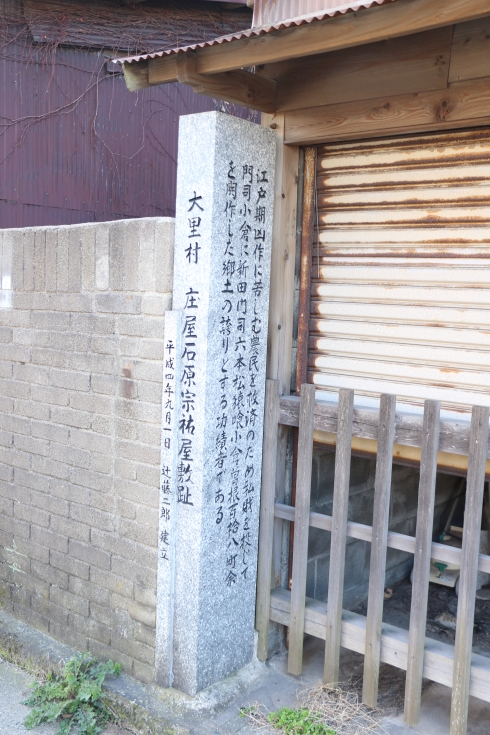 江戸期凶作に苦しむ農民を救済のため私財を投じて
門司小倉に新田門司六本松猿喰小倉曽根百拾八町余
を開作した郷土の誇りとする功績者である
大里村 庄屋石原宗祐屋敷趾
平成四年九月一日 辻藤二郎 建立